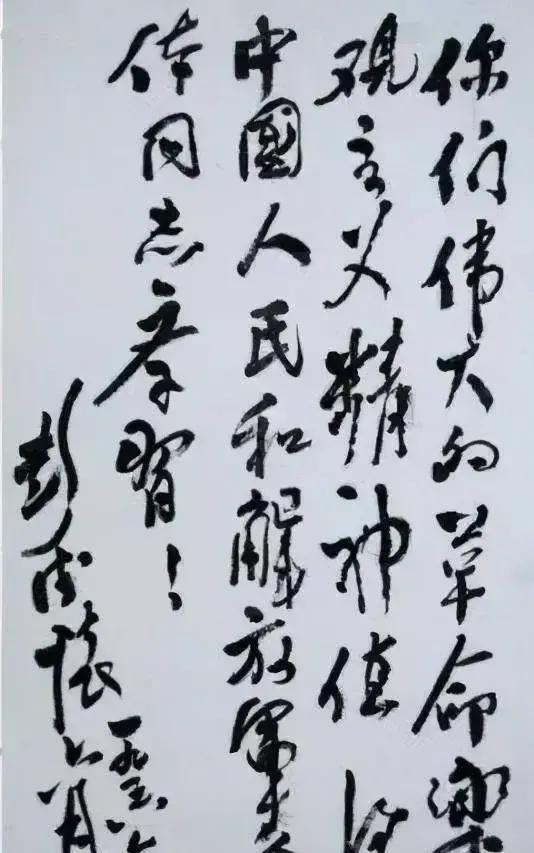 你们伟大的革命樂
观主义精神值得
中國人民和解放軍全
体同志学習!
彭德懷